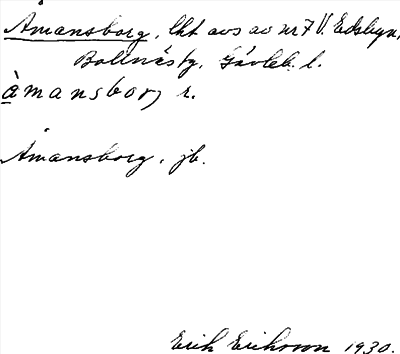 Åmansborg, lht avs av nr 7 V. Edsbyn,
Bollnäs tg, Gävleb. l.
åmansborj r.
Åmansborg, jb.
Erik Erikson 1930.